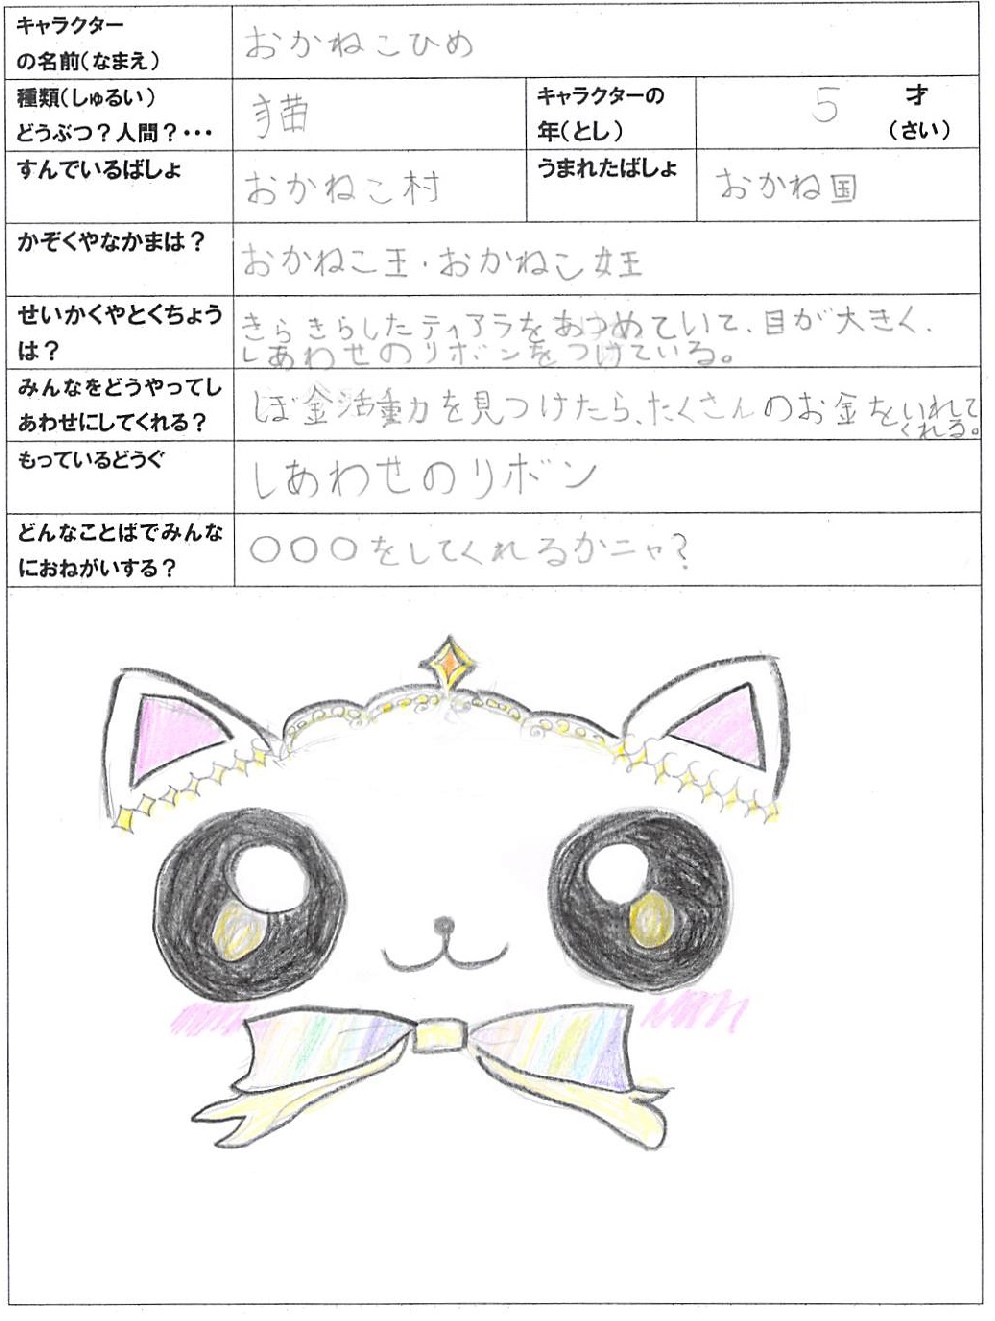 キャラクター
の名前(なまえ)
おかねこひめ
種類(しゅるい)
どうぶつ？人間？・・・
猫
キャラクターの
年(とし)
5
才
(さい)
すんでいるばしょ
おかねこ村
うまれたばしょ
おかね国
かぞくやなかまは？
おかねこ王・おかねこ女王
せいかくやとくちょう
は？
きらきらしたティアラをあつめていて、目が大きく、
しあわせのリボンをつけている。
みんなをどうやってし
あわせにしてくれる？
ぼ金活動を見つけたら、たくさんのお金をいれて
くれる。
もっているどうぐ
しあわせのリボン
どんなことばでみんな
におねがいする？
〇〇〇をしてくれるかニャ？